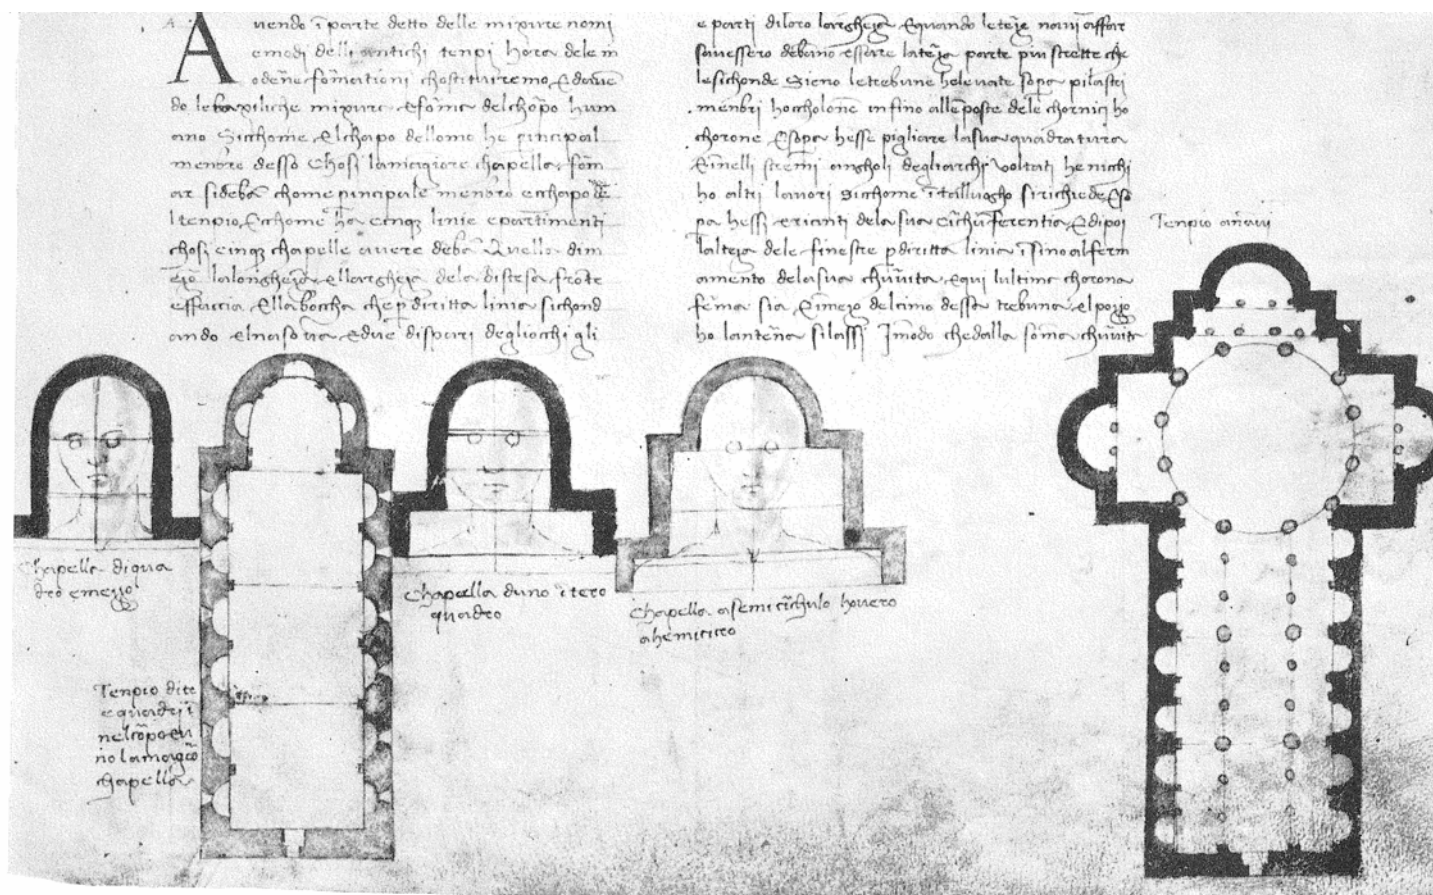 Avendo ĩ parte detto delle mixure nomi
e modi delli antichi tenpi hora dele m
oderne formationi chostituiremo, E daven
do le baxiliche mixura e forma del chorpo hum
ano Sicchome el chapo dellomo he principal
menbro desso Chosi la magiore chapella form
ar si deba chome principale menbro e cchapo de
l tenpio, E cchome ha cinque linie e partimenti
chosi cinque chapelle avere deba Quella dim
ezo la longheza e llargheza dela distesa fronte
e ffaccia, E lla boccha che per diritta linia sichond
ando el naso va, E due dispari degli occhi gli
e parti di loro largheza E quando le terze navi affar
savessero debano essare la terza parte piu strette che
le sichonde Sieno le trebune helevate sopra pilastri
menbri ho cholonne infino alle poste dele chornici ho
chorone E sopra hesse pigliare la sua quadratura
E inelli stremi angholi degli archi voltati he nicchi
ho altri lavori sicchome ĩ tal luogho si richiede E so
pa hessi e rianti dela sua circhunferentia, E dipoi
lalteza dele finestre per diritta linia ĩfino al ferm
amento dela sua chuvita, E qui lultima chorona
ferma sia E imezo del cimo dessa trebuna el pozo
ho lanterna si lassi Imodo che dalla soma chuvita
Tenpio a navi
Chapella di qua
dro e mezo
Chapella duno ĩtero
quadro
Chapella a semicirchulo hovero
a hemiciro
Tenpio di tre
e quadri ĩ
nel chorpo en
no la magiore
chapella